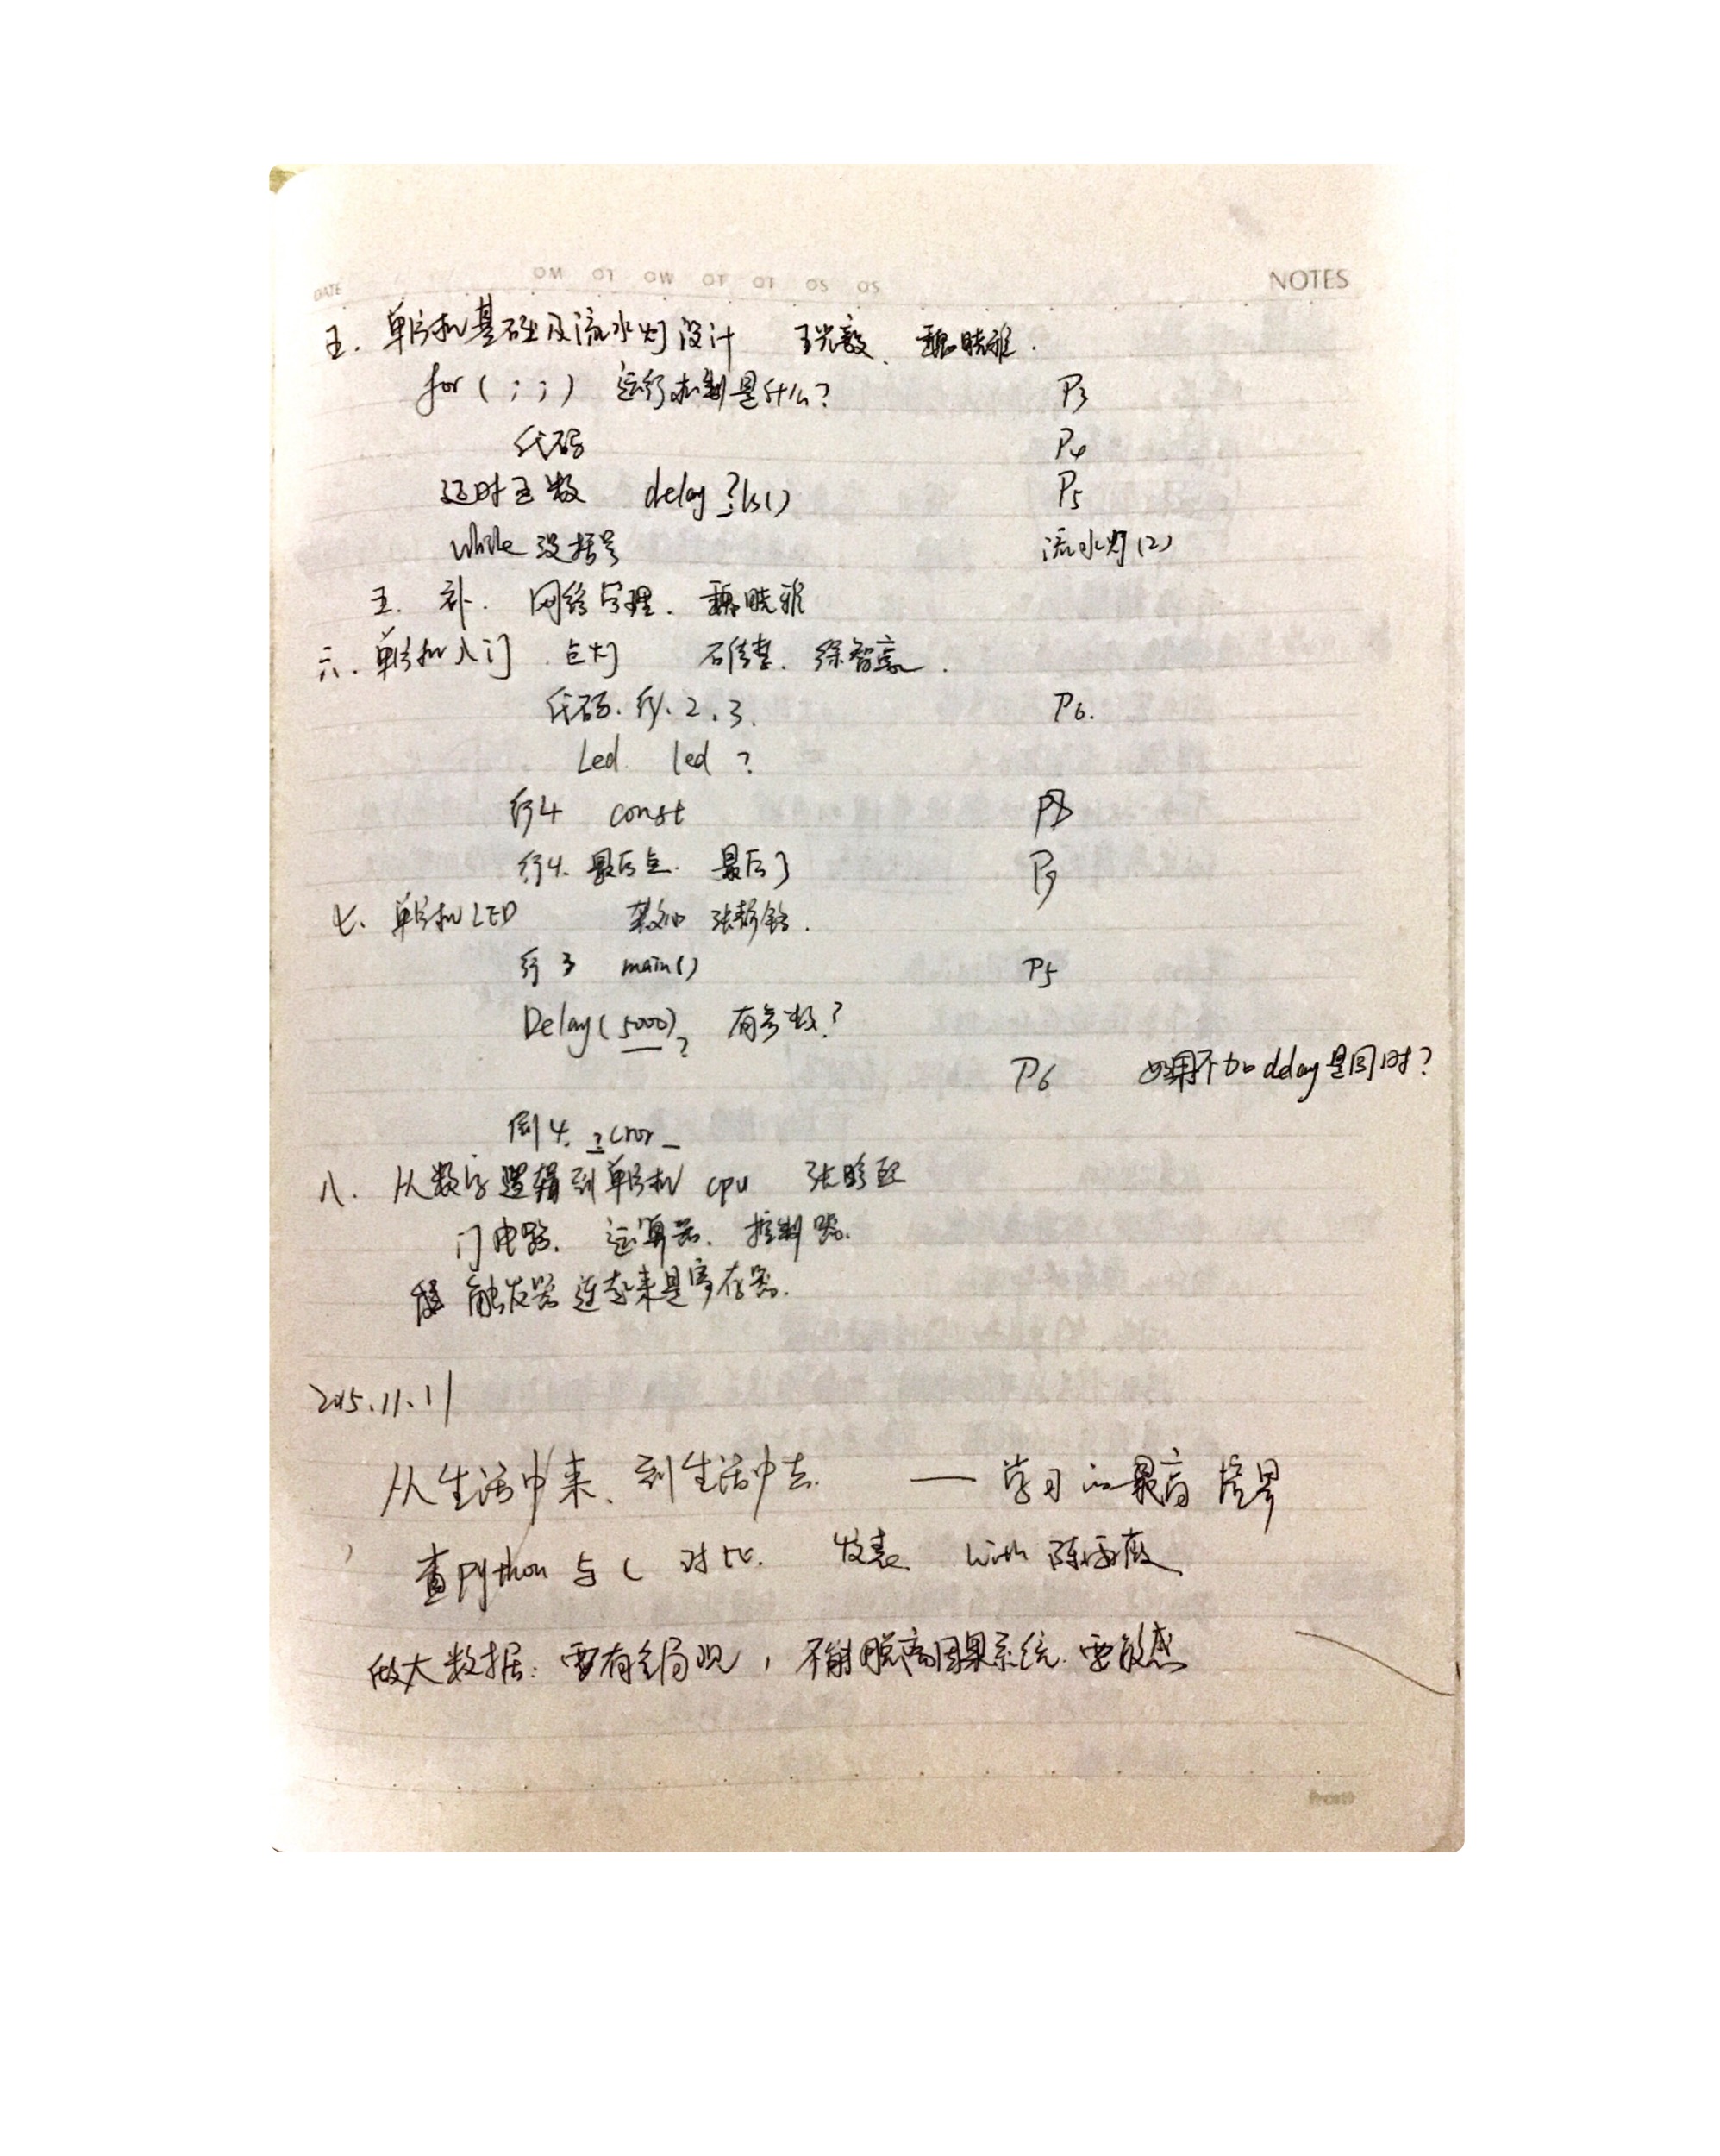 DATE MO TO WO TO TO SO SO NOTES
五. 单片机基础及流水灯设计 魏晓雅.
for ( ; ; ) 运行机制是什么? P3
代码 P4
延时函数 delay ?1s() P5
while 没括号 流水灯(2)
五. 补. 网络管理. 魏晓雅
六. 单片机入门 点灯 徐智
代码. 行. 2. 3. P6.
Led led ?
行4 const P8
行4. 最后点. 最后 } P9
七、单片机LED 张
行 3 main() P5
Delay(5000)? 有参数?
P6 如果不加delay是同时?
倒4. ? cror _
八. 从数字逻辑到单片机 cpu 张
门电路. 运算器. 控制器.
触发器连起来是寄存器.
2015.11.11
从生活中来、到生活中去. — 学习的最高境界
查python与C对比. 发表 with 陈雨薇
做大数据: 要有全局观, 不能脱离因果系统. 要敏感